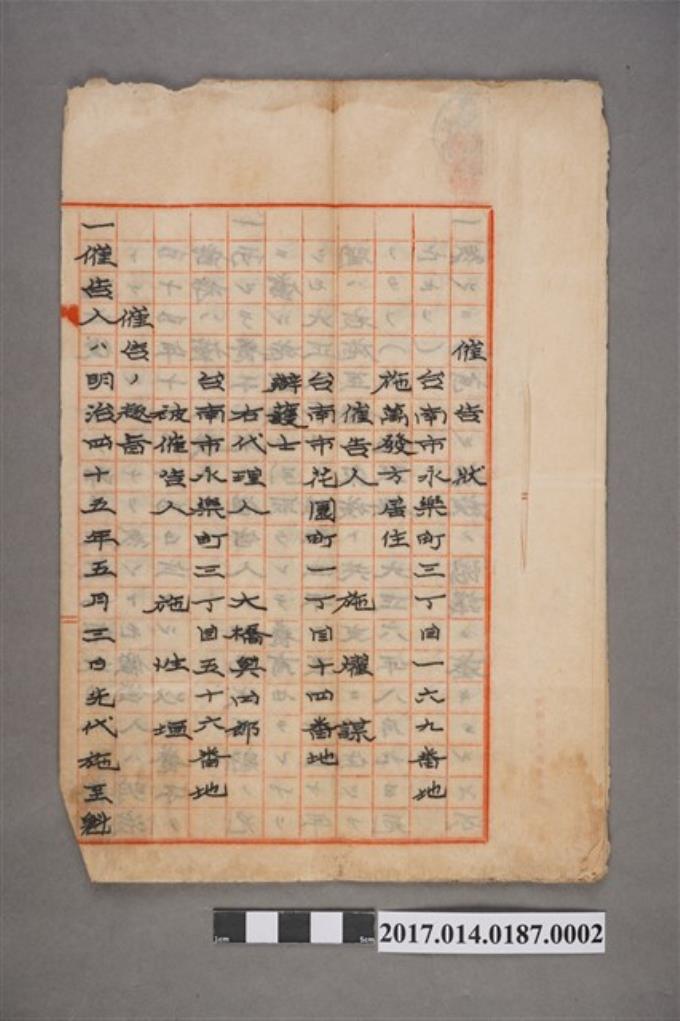 催告狀
台南市永樂町三丁目一六九番地
施萬發方居住
催告人 施燿謀
台南市花園町一丁目十四番地
辯護士
右代理人 大橋與四郎
台南市永樂町三丁目五十六番地
被催告人 施性垣
催告ノ趣旨
一催告人ハ明治四十五年五月三日先代施至魁
1cm 5cm
2017.014.0187.0002